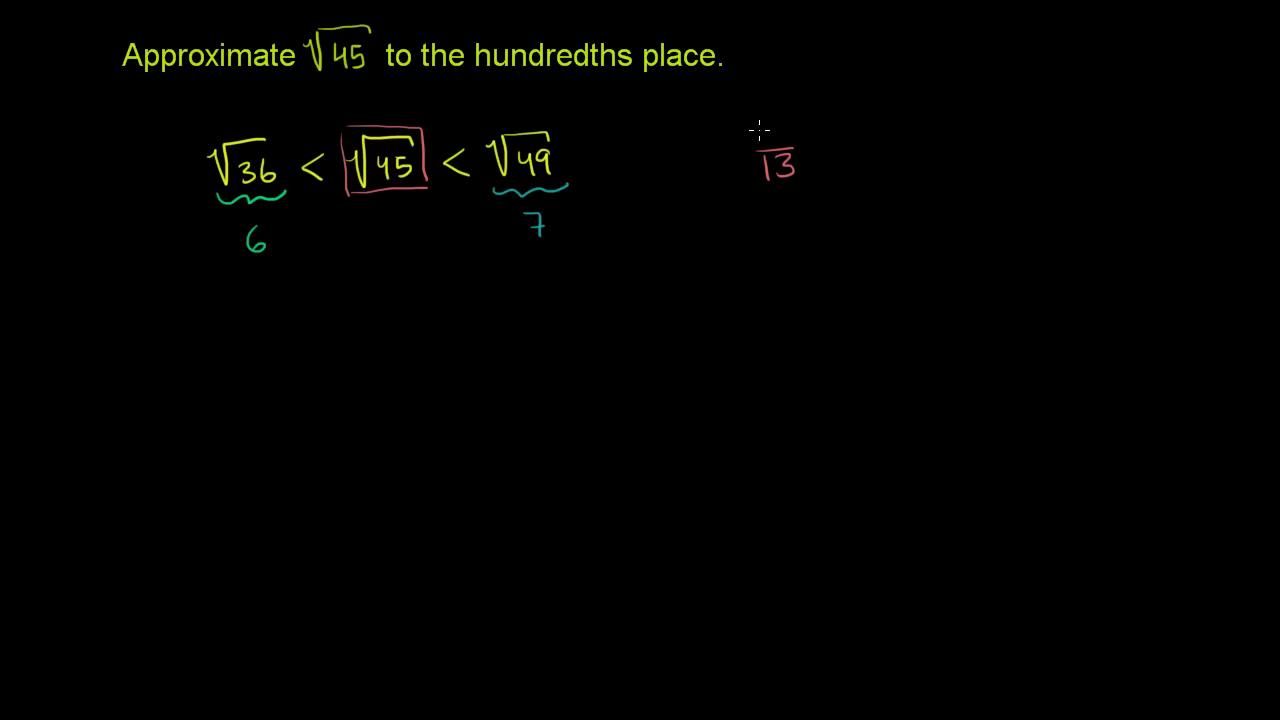 Approximate √45 to the hundredths place.
√36 < √45 < √49
13
6
7